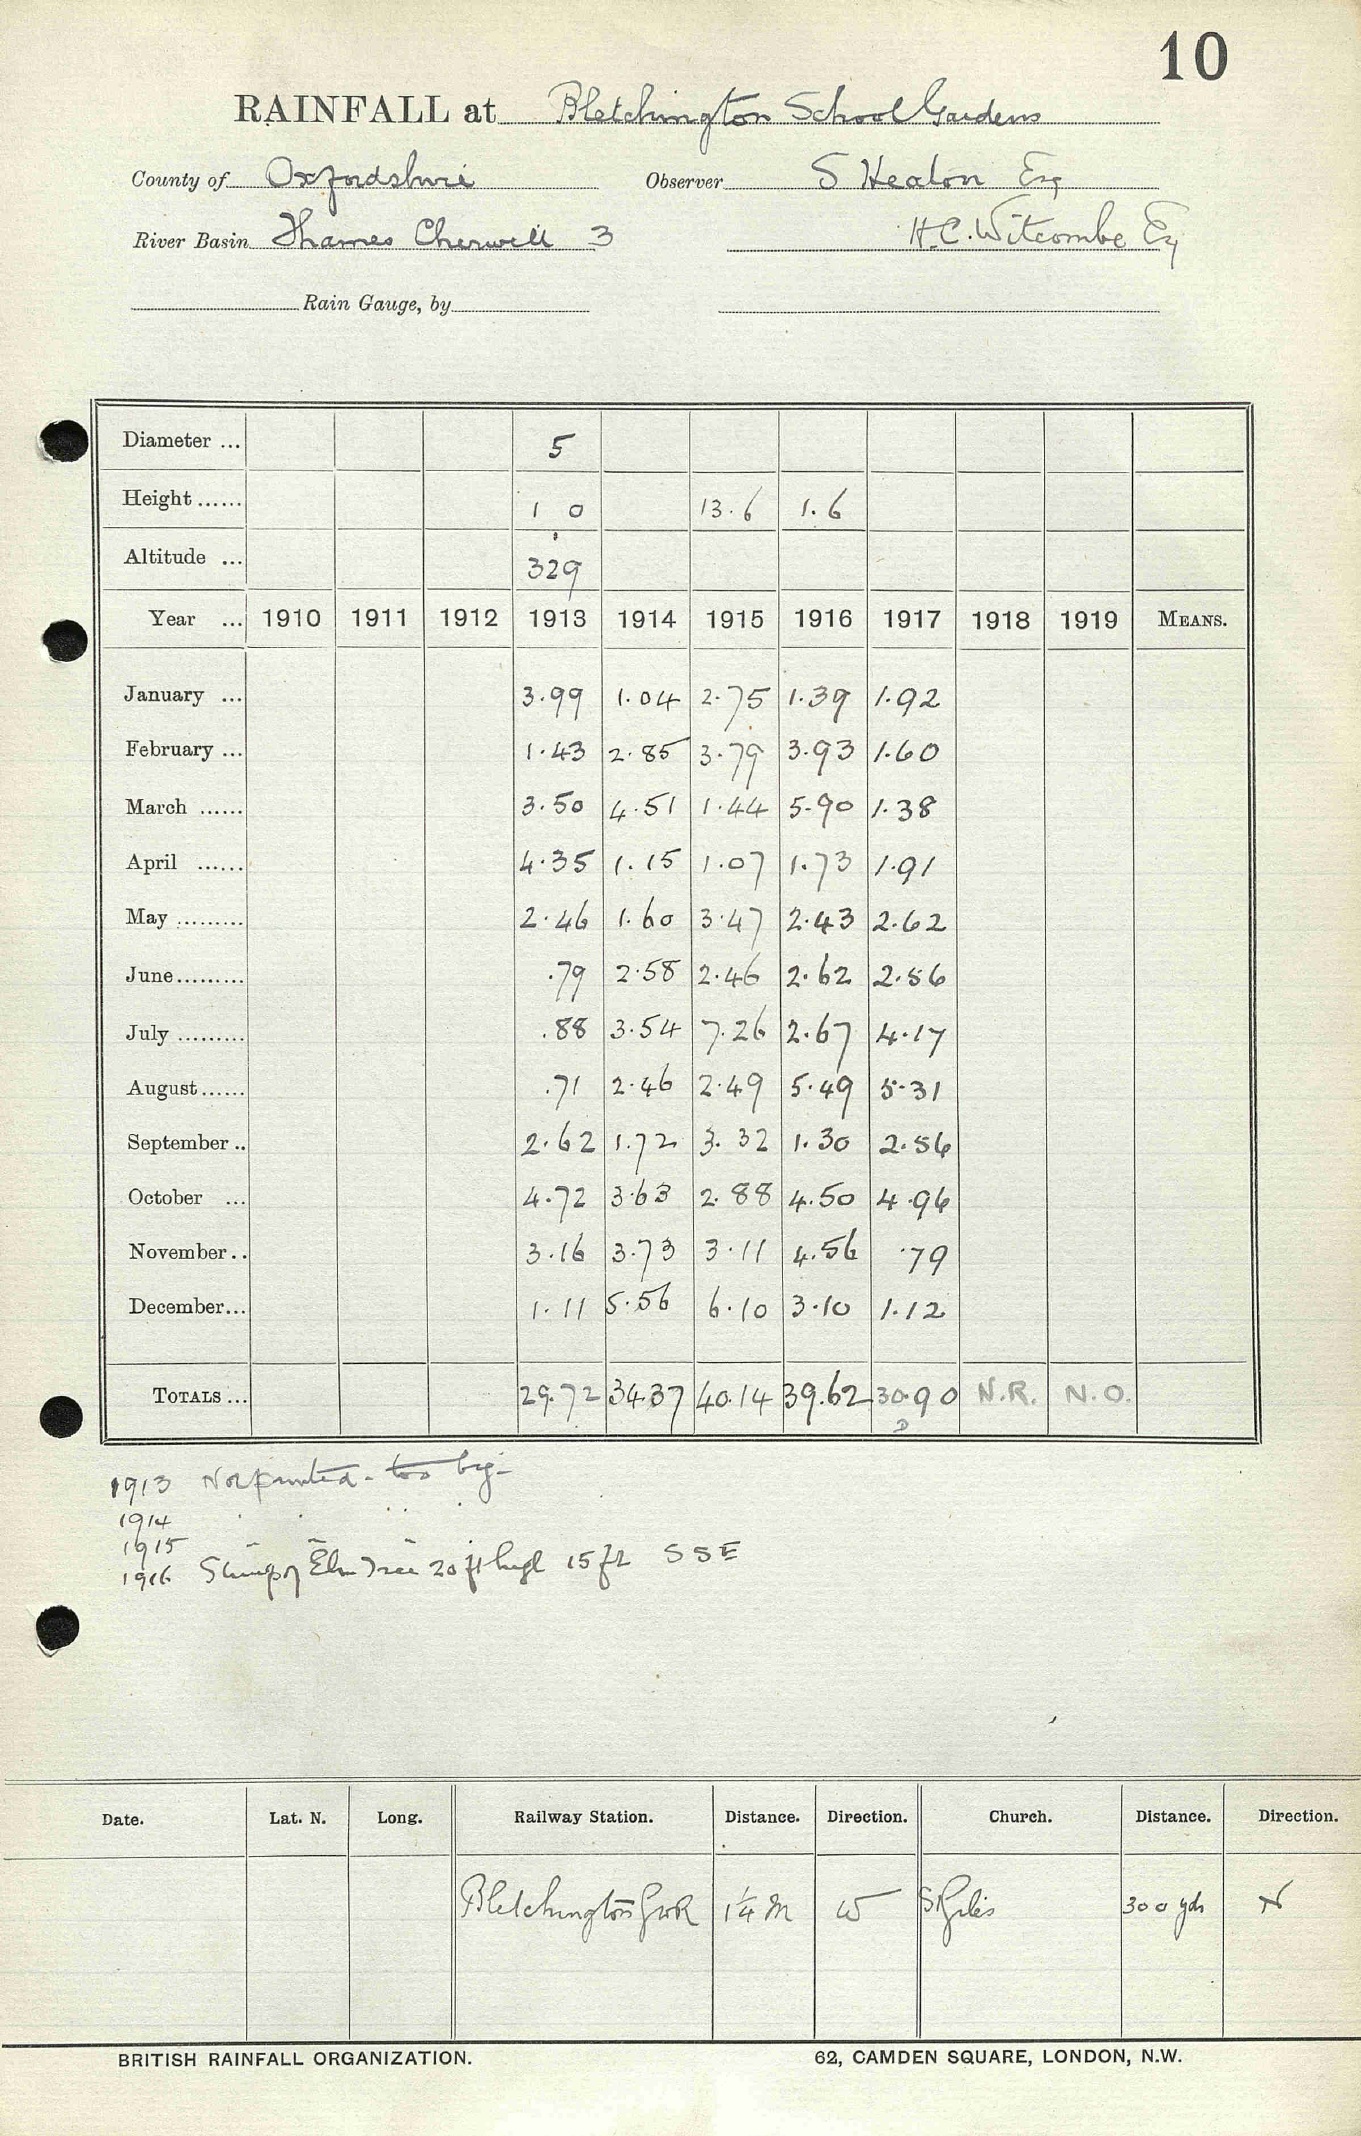 10
RAINFALL at Bletchington School Gardens
County of Oxfordshire Observer S Heaton Esq
River Basin Thames Cherwell 3 H.C. Witcombe Esq
Rain Gauge, by
Diameter ... 5
Height ...... 1 0 13.6 1.6
Altitude ... 329
Year ... 1910 1911 1912 1913 1914 1915 1916 1917 1918 1919 MEANS.
January ... 3.99 1.04 2.75 1.39 1.92
February ... 1.43 2.85 3.79 3.93 1.60
March ...... 3.50 4.51 1.44 5.90 1.38
April ...... 4.35 1.15 1.07 1.73 1.91
May ......... 2.46 1.60 3.47 2.43 2.62
June ......... .79 2.58 2.46 2.62 2.56
July ......... .88 3.54 7.26 2.67 4.17
August ...... .71 2.46 2.49 5.49 5.31
September .. 2.62 1.72 3.32 1.30 2.56
October ... 4.72 3.63 2.88 4.50 4.96
November .. 3.16 3.73 3.11 4.56 .79
December ... 1.11 5.56 6.10 3.10 1.12
TOTALS ... 29.72 34.37 40.14 39.62 30.90 N.R. N.O.
D
1913 Not printed - too big -
1914
1915
1916 Stump of Elm Tree 20 ft high 15 ft SSE
Date. Lat. N. Long. Railway Station. Distance. Direction. Church. Distance. Direction.
Bletchington 1¼ M W St Giles 300 yds N
BRITISH RAINFALL ORGANIZATION. 62, CAMDEN SQUARE, LONDON, N.W.